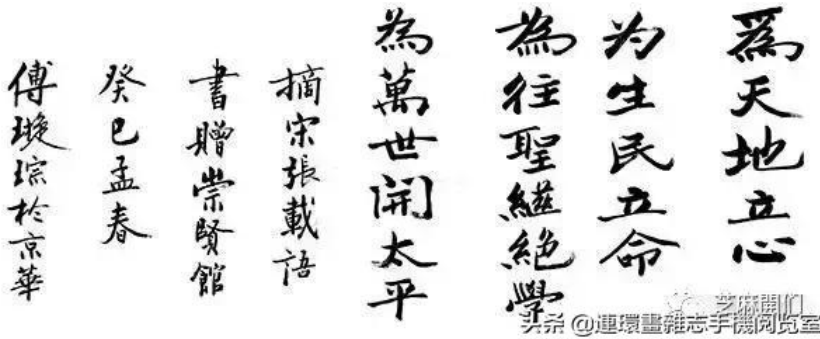 為天地立心
为生民立命
為往聖繼絕學
為萬世開太平
摘宋張載語
書贈崇賢館
癸巳孟春
傅璇琮於京華
芝麻開们
头条 @連環畫雜志手機阅览室